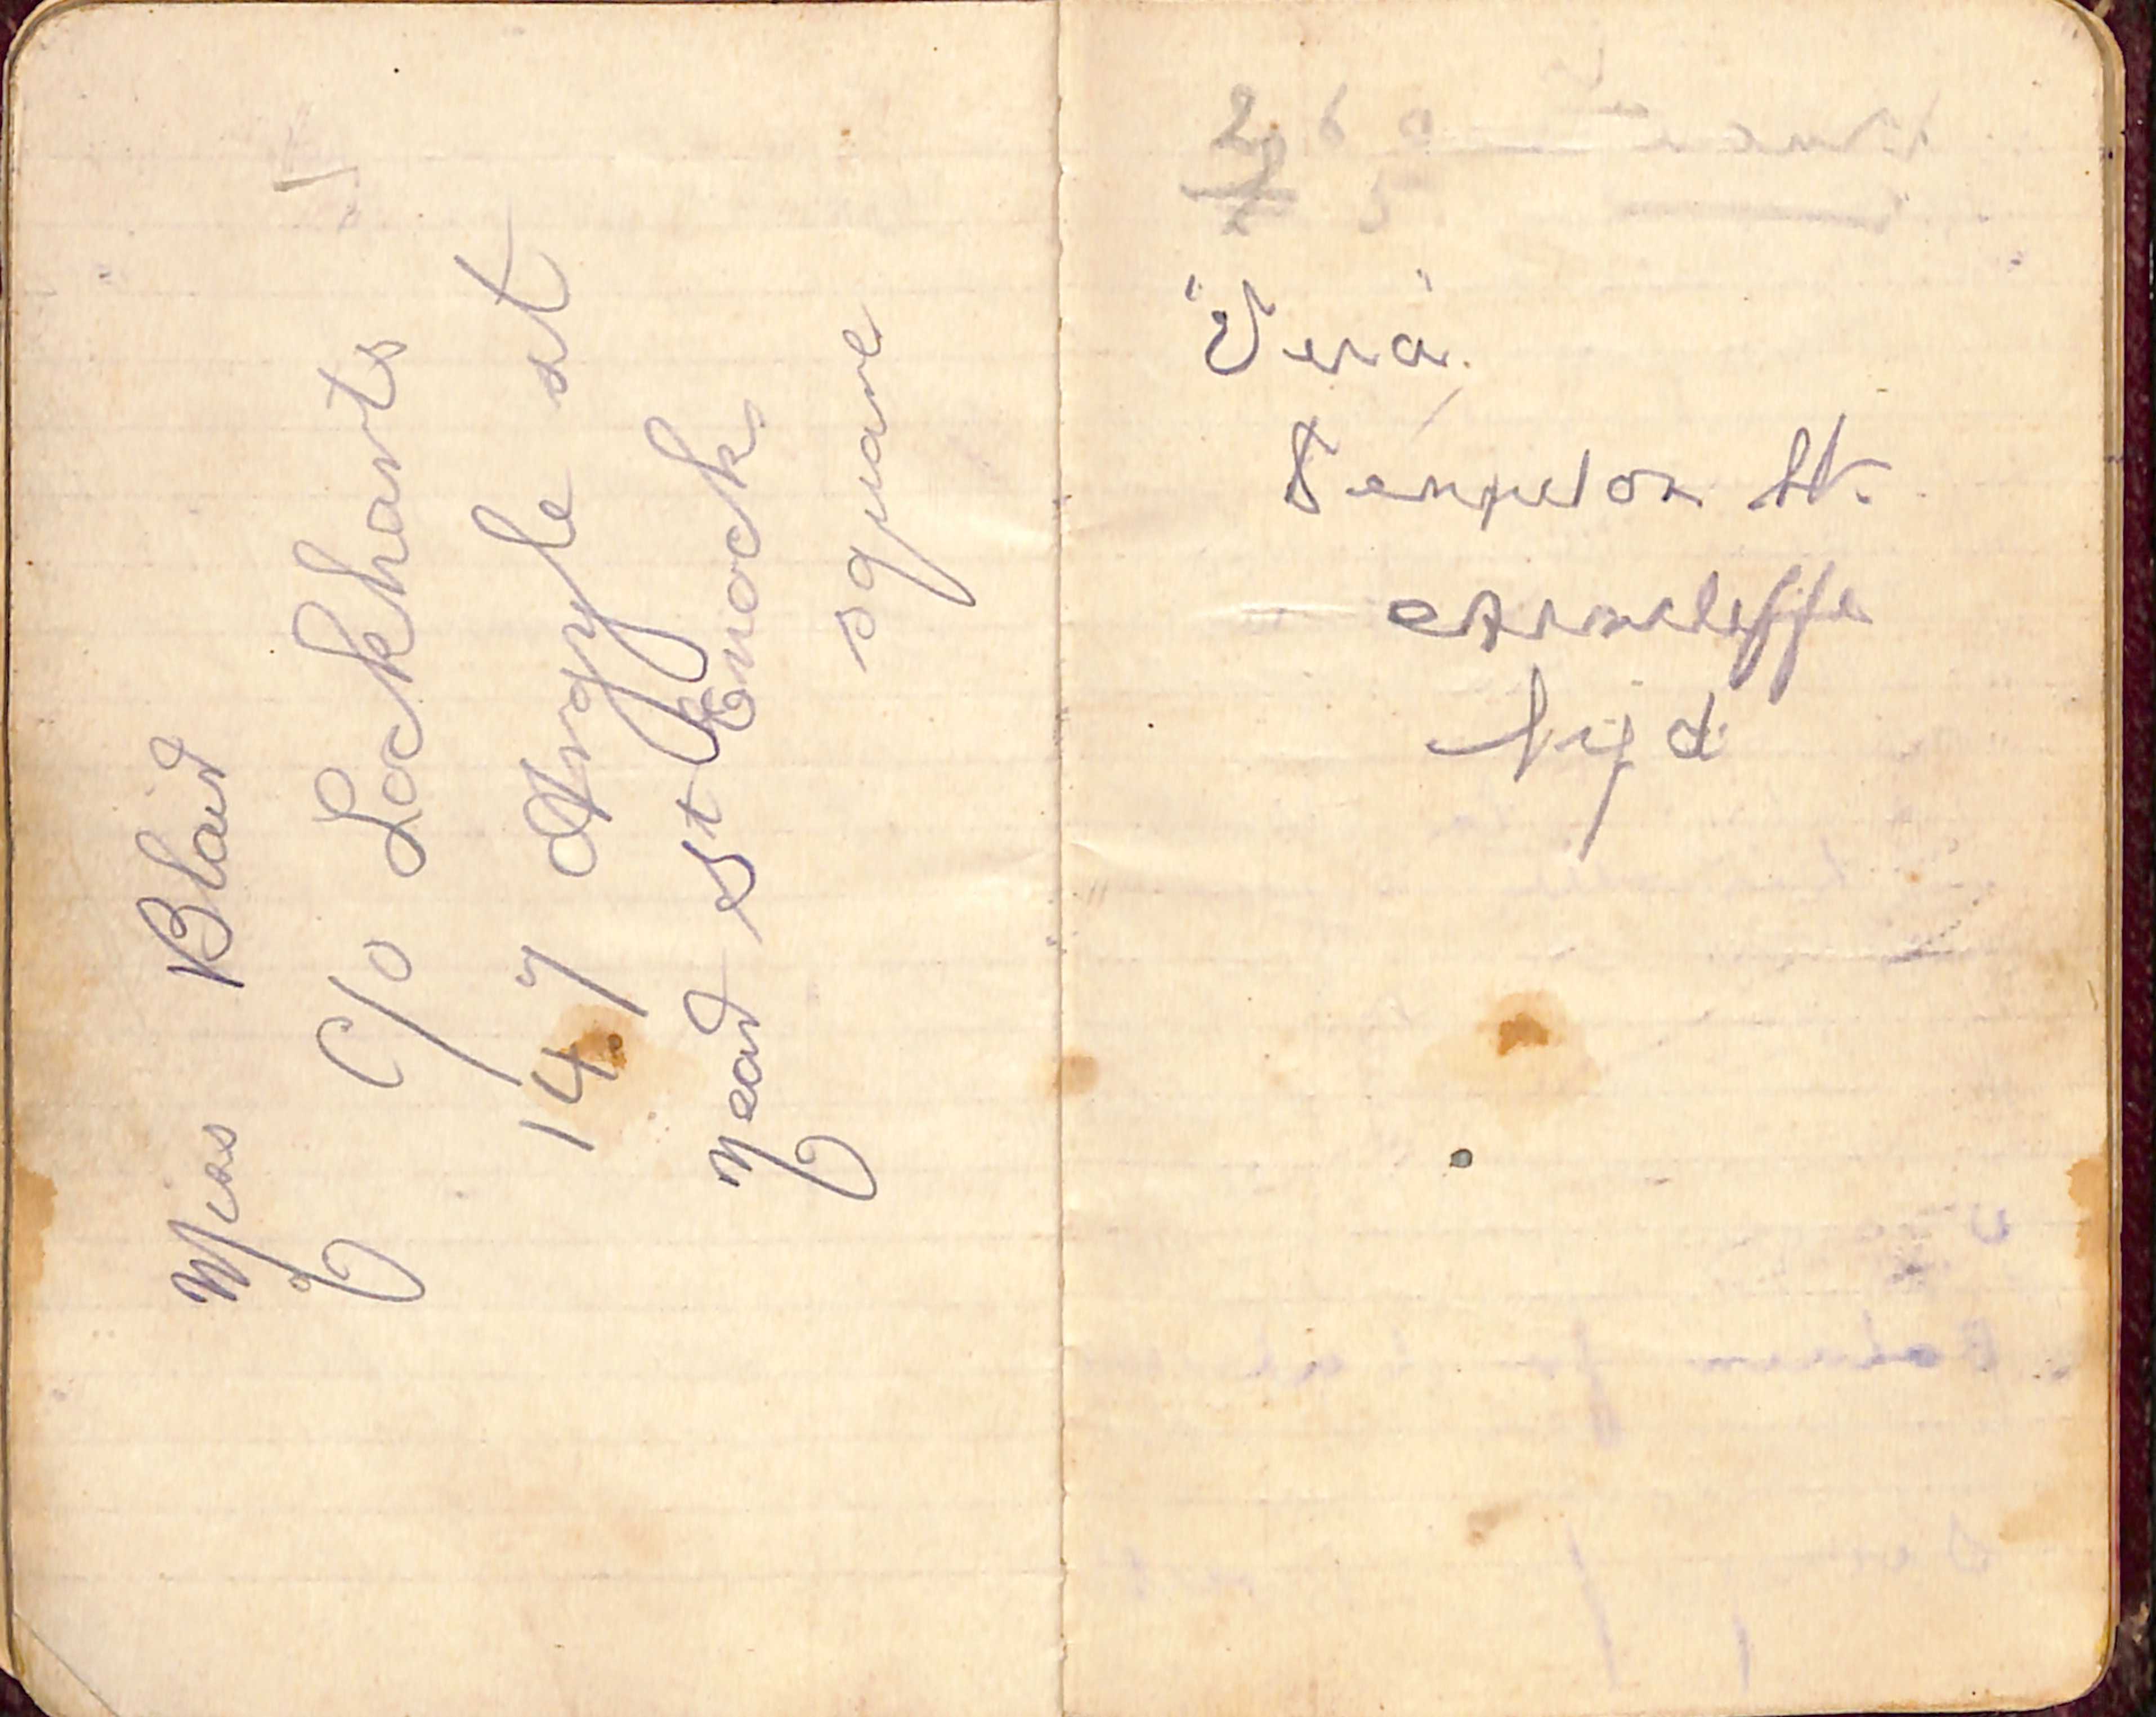 Miss Blair
c/o Lockharts
147 Argyle st
near st Enock
square
"Vera"
Ferguson St.
Arncliffe
Syd